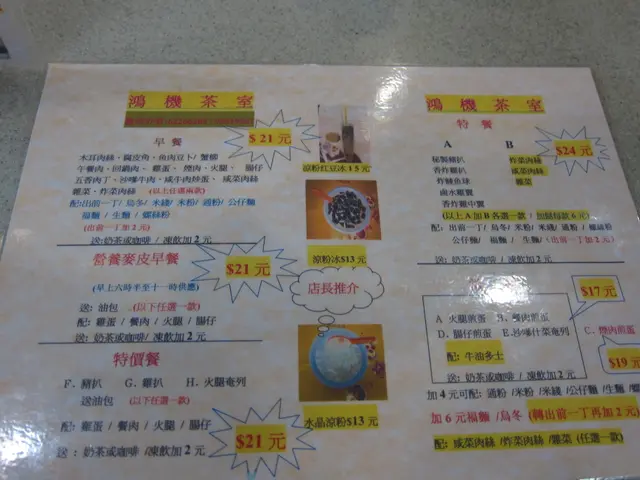 鴻機茶室
$21元
早餐
木耳肉絲、腐皮角、魚肉豆卜/蟹柳
午餐肉、回鍋肉、雞蛋、煙肉、火腿、腸仔
五香肉丁、沙嗲牛肉、咸牛肉炒蛋、咸菜肉絲
雜菜、炸菜肉絲 (以上任選兩款)
配:出前一丁/烏冬/米綫/米粉/通粉/公仔麵
福麵/生麵/螺絲粉
(出前一丁加2元)
送:奶茶或咖啡/凍飲加2元
營養麥皮早餐
$21元
(早上六時半至十一時供應)
送:油包 (以下任選一款)
配:雞蛋/餐肉/火腿/腸仔
送:奶茶或咖啡/凍飲加2元
特價餐
F、豬扒 G、雞扒 H、火腿奄列
送油包 (以下任選一款)
配:雞蛋/餐肉/火腿/腸仔
$21元
送:奶茶或咖啡/凍飲加2元
涼粉紅豆冰15元
涼粉冰$13元
店長推介
水晶涼粉$13元
鴻機茶室
特餐
A B
$24元
秘製豬扒 炸菜肉絲
香炸雞扒 咸菜肉絲
炸鯪魚球 雜菜
鹵水雞翼
香炸雞中翼
(以上A加B各選一款/加餸每款6元)
配:出前一丁/烏冬/米粉/米綫/通粉/螺絲粉
公仔麵/福麵/生麵(出前一丁加2元)
送:奶茶或咖啡/凍飲加2元
$17元
A 火腿煎蛋 B、餐肉煎蛋 C、煙肉煎蛋
D、腸仔煎蛋 E、沙嗲什菜奄列
$19元
配:牛油多士
送:奶茶或咖啡/凍飲加2元
加4元可配:通粉/米粉/米綫/公仔麵/生麵/螺
加6元福麵/烏冬(轉出前一丁再加2元)
配:咸菜肉絲/炸菜肉絲/雜菜(任選一款)